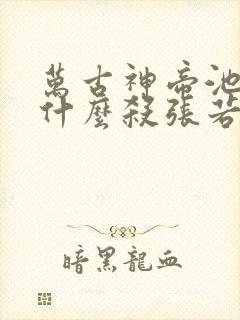 萬古神帝池
什麼殺張若
暗黑龍血